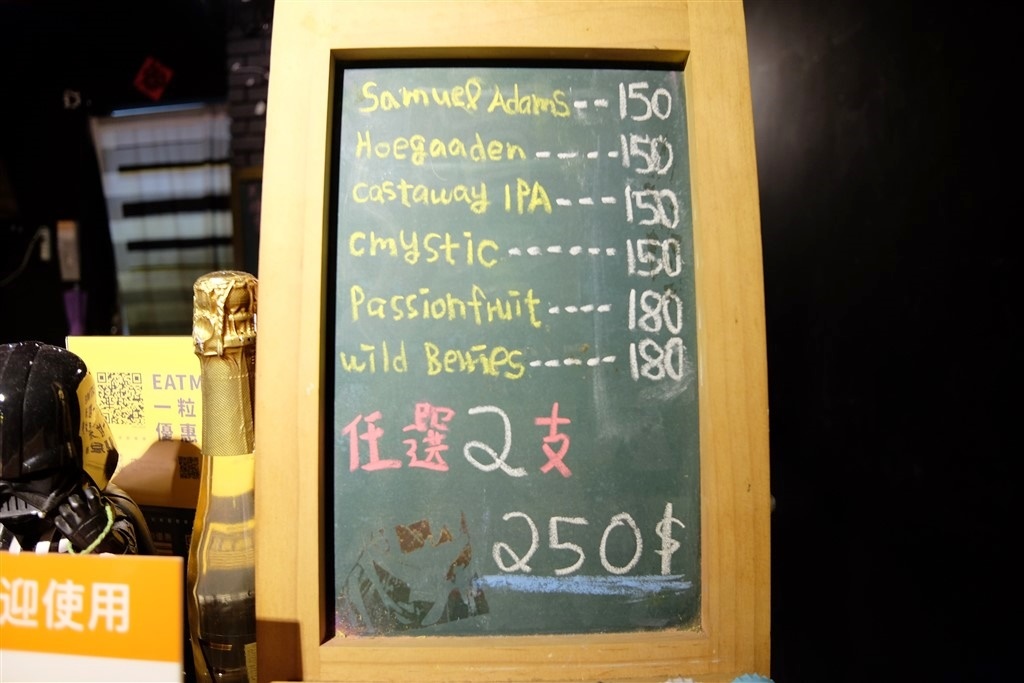 Samuel Adams--150
Hoegaaden----150
castaway IPA---150
cmystic------150
Passionfruit----180
wild Berries-----180
任選2支
250$
EATM
一粒
優惠
迎使用